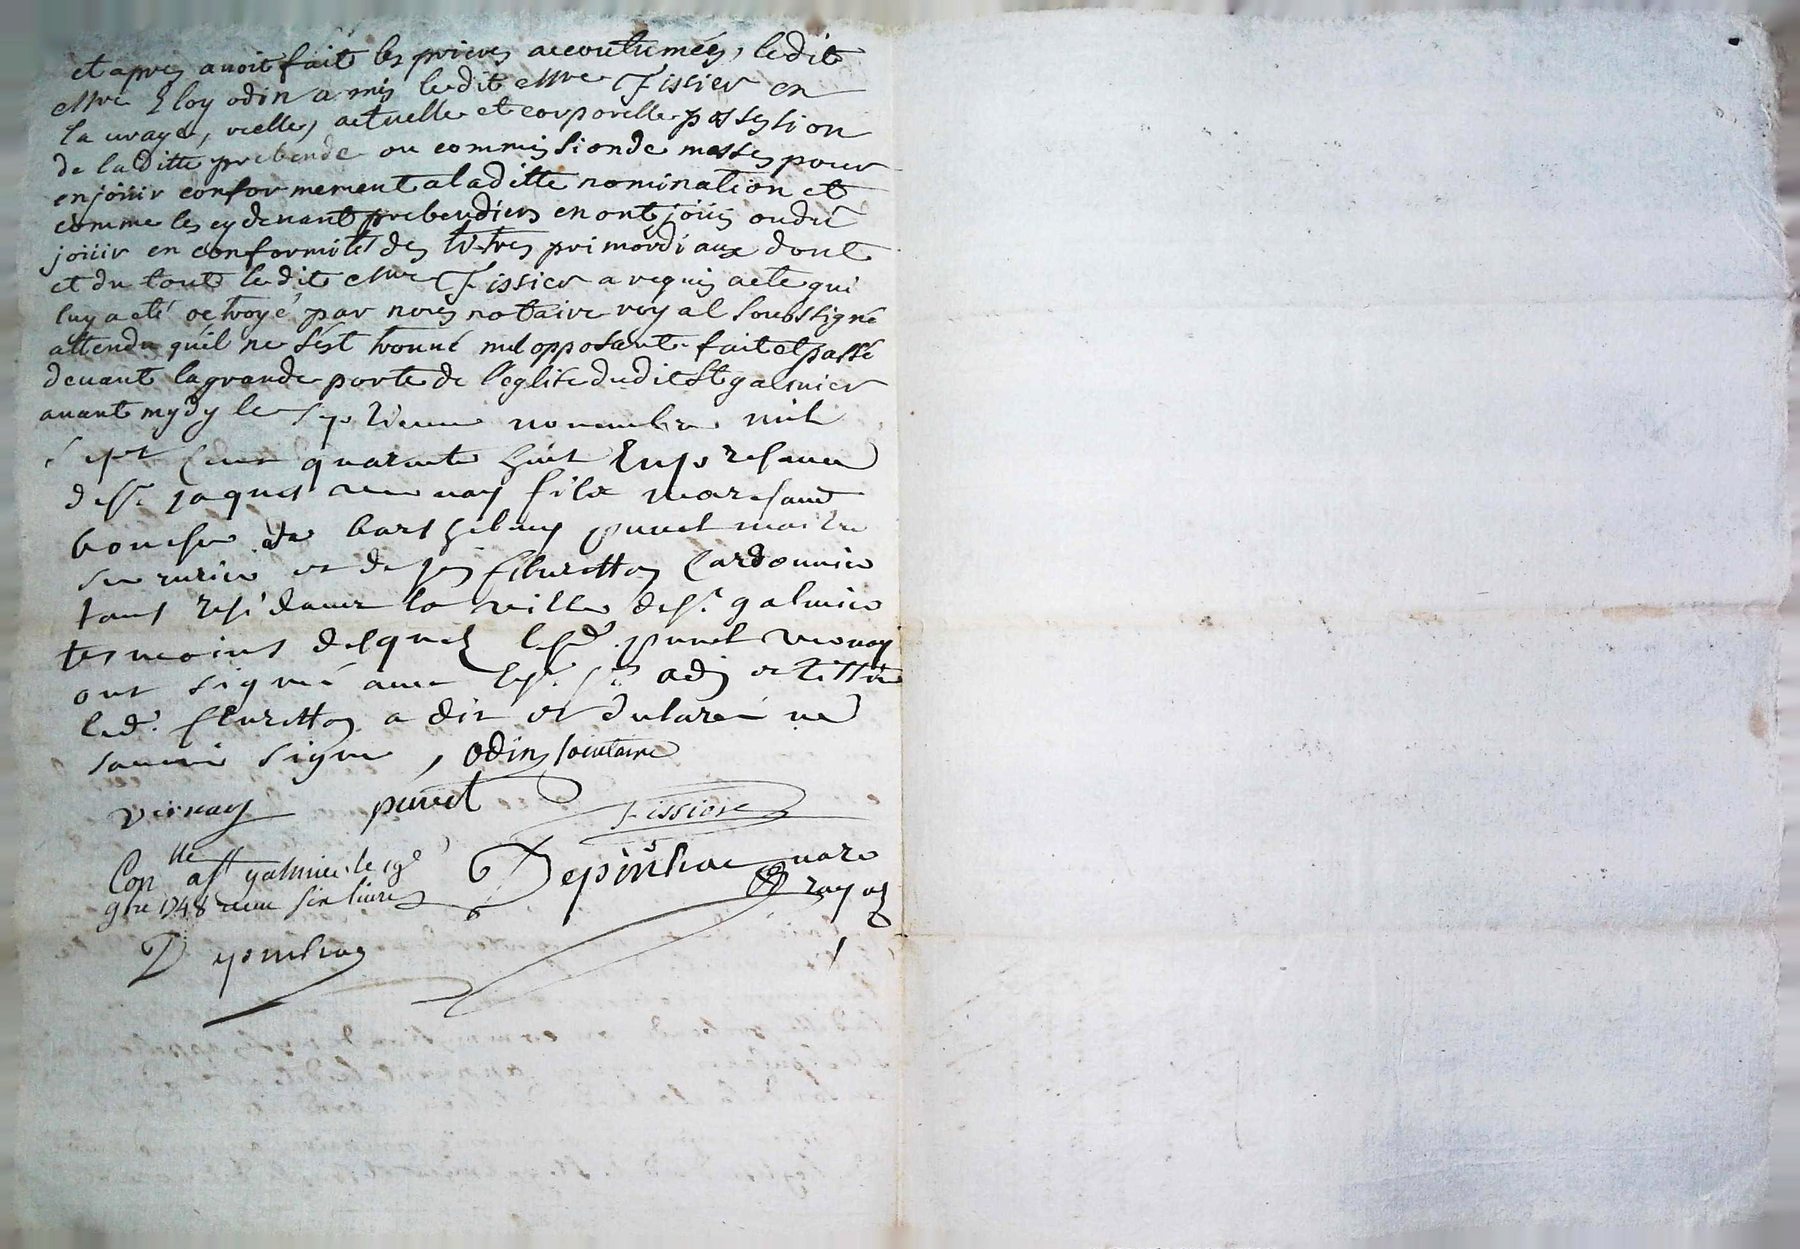 et apres avoir fait les prieres accoutumées, le dit
Mre Eloy odin a mis le dit Mre Tissier en
la vraye, reelle, actuelle et corporelle possession
de la ditte prebende ou commission de messes pour
en joüir conformement a la ditte nomination et
comme les cy devant prebendiers en ont joüis ou dû
joüir en conformité des titres primordiaux dont
et du tout le dit Mre Tissier a requis acte qui
luy a eté octroyé par nous notaire royal soussigné
attendu qu'il ne s'est trouvé nul opposant. fait et passé
devant la grande porte de l'eglise dudit St galmier
avant mydy le septieme novembre mil
sept cent quarante huit En presence
de sr. jaques vernay fils marchand
boucher de barthelemy punet maitre
serrurier et de jn fleuretton Cordonnier
tous residants la ville de st. galmier
tesmoins desquels lesd. punet vernay
ont signé avec lesd. srs odin et tissier
led. fleuretton a dit et declaré ne
savoir signer, odin, secretaire
vernay punet Tissier
Conlle a st galmier le 19e Depinhac nore
9bre 1748 receu six livres royal
Depinhac